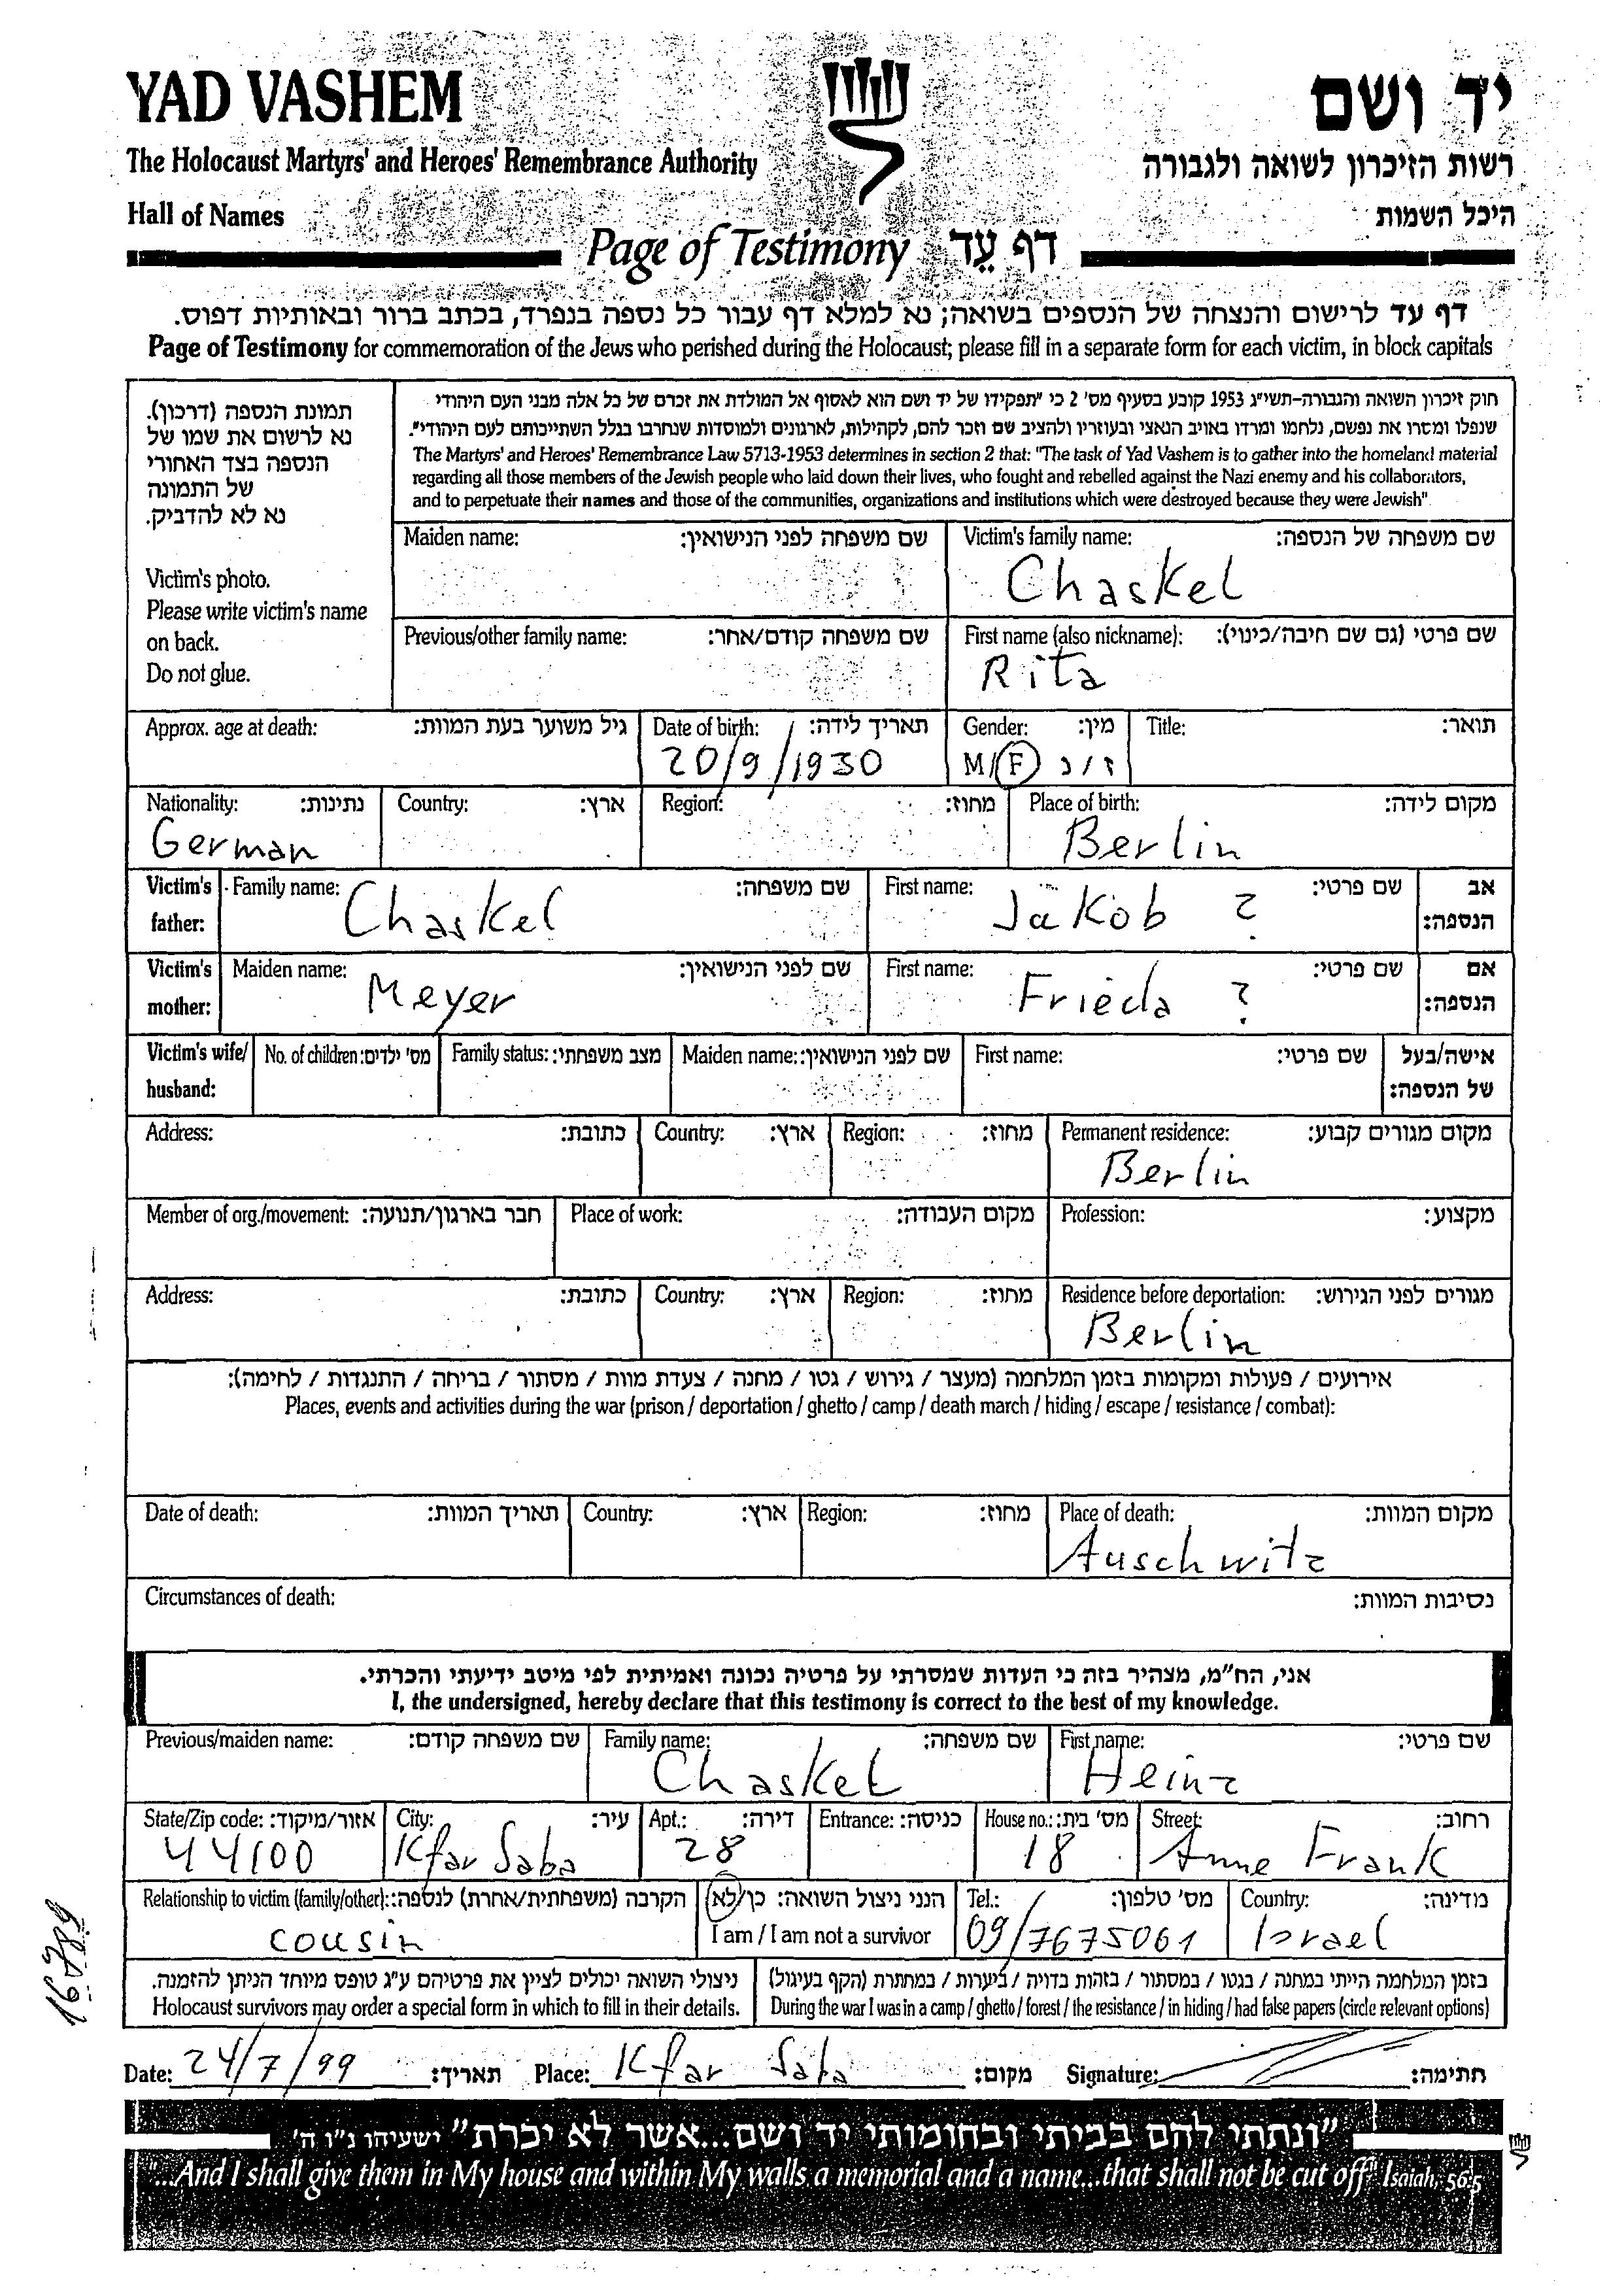 YAD VASHEM
יד ושם
The Holocaust Martyrs' and Heroes' Remembrance Authority
רשות הזיכרון לשואה ולגבורה
Hall of Names
היכל השמות
Page of Testimony דף עֵד
דף עד לרישום והנצחה של הנספים בשואה; נא למלא דף עבור כל נספה בנפרד, בכתב ברור ובאותיות דפוס.
Page of Testimony for commemoration of the Jews who perished during the Holocaust; please fill in a separate form for each victim, in block capitals
תמונת הנספה (דרכון).
נא לרשום את שמו של
הנספה בצד האחורי
של התמונה
נא לא להדביק.
Victim's photo.
Please write victim's name
on back.
Do not glue.
חוק זיכרון השואה והגבורה-תשי"ג 1953 קובע בסעיף מס' 2 כי "תפקידו של יד ושם הוא לאסוף אל המולדת את זכרם של כל אלה מבני העם היהודי
שנפלו ומסרו את נפשם, נלחמו ומרדו באויב הנאצי ובעוזריו ולהציב שם וזכר להם, לקהילות, לארגונים ולמוסדות שנחרבו בגלל השתייכותם לעם היהודי".
The Martyrs' and Heroes' Remembrance Law 5713-1953 determines in section 2 that: "The task of Yad Vashem is to gather into the homeland material
regarding all those members of the Jewish people who laid down their lives, who fought and rebelled against the Nazi enemy and his collaborators,
and to perpetuate their names and those of the communities, organizations and institutions which were destroyed because they were Jewish"
Maiden name: שם משפחה לפני הנישואין: Victim's family name: שם משפחה של הנספה:
Chaskel
Previous/other family name: שם משפחה קודם/אחר: First name (also nickname): שם פרטי (גם שם חיבה/כינוי):
Rita
Approx. age at death: גיל משוער בעת המוות: Date of birth: תאריך לידה: Gender: מין: Title: תואר:
20/9/1930 M/F ז/נ
Nationality: נתינות: Country: ארץ: Region: מחוז: Place of birth: מקום לידה:
German Berlin
Victim's father: Family name: שם משפחה: First name: שם פרטי: אב הנספה:
Chaskel Jakob ?
Victim's mother: Maiden name: שם לפני הנישואין: First name: שם פרטי: אם הנספה:
Meyer Frieda ?
Victim's wife/ husband: No. of children: מס' ילדים: Family status: מצב משפחתי: Maiden name: שם לפני הנישואין: First name: שם פרטי: אישה/בעל של הנספה:
Address: כתובת: Country: ארץ: Region: מחוז: Permanent residence: מקום מגורים קבוע:
Berlin
Member of org./movement: חבר בארגון/תנועה: Place of work: מקום העבודה: Profession: מקצוע:
Address: כתובת: Country: ארץ: Region: מחוז: Residence before deportation: מגורים לפני הגירוש:
Berlin
אירועים / פעולות ומקומות בזמן המלחמה (מעצר / גירוש / גטו / מחנה / צעדת מוות / מסתור / בריחה / התנגדות / לחימה):
Places, events and activities during the war (prison / deportation / ghetto / camp / death march / hiding / escape / resistance / combat):
Date of death: תאריך המוות: Country: ארץ: Region: מחוז: Place of death: מקום המוות:
Auschwitz
Circumstances of death: נסיבות המוות:
אני, הח"מ, מצהיר בזה כי העדות שמסרתי על פרטיה נכונה ואמיתית לפי מיטב ידיעתי והכרתי.
I, the undersigned, hereby declare that this testimony is correct to the best of my knowledge.
Previous/maiden name: שם משפחה קודם: Family name: שם משפחה: First name: שם פרטי:
Chaskel Heinz
State/Zip code: אזור/מיקוד: City: עיר: Apt.: דירה: Entrance: כניסה: House no.: מס' בית: Street: רחוב:
44100 Kfar Saba 28 18 Anne Frank
Relationship to victim (family/other): הקרבה (משפחתית/אחרת) לנספה: הנני ניצול השואה: כן/לא Tel.: מס' טלפון: Country: מדינה:
cousin I am / I am not a survivor 09/7675061 Israel
ניצולי השואה יכולים לציין את פרטיהם ע"ג טופס מיוחד הניתן להזמנה.
Holocaust survivors may order a special form in which to fill in their details.
בזמן המלחמה הייתי במחנה / בגטו / במסתור / בזהות בדויה / ביערות / במחתרת (הקף בעיגול)
During the war I was in a camp / ghetto / forest / the resistance / in hiding / had false papers (circle relevant options)
Date: 24/7/99 תאריך: Place: Kfar Saba מקום: Signature: חתימה:
"ונתתי להם בביתי ובחומותי יד ושם...אשר לא יכרת" ישעיהו נ"ו ה'
"...And I shall give them in My house and within My walls a memorial and a name...that shall not be cut off" Isaiah, 56:5
16789